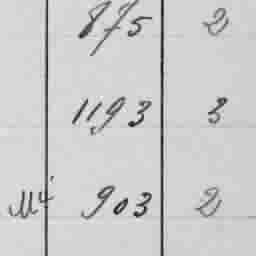 875 2
1193 3
Mc 903 2